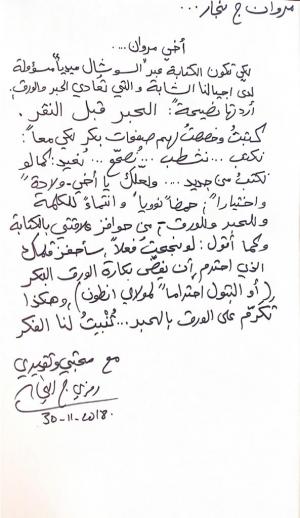 مروان ج نجار...
أخي مروان...
لكي تكون الكتابة عبر "السوشال ميديا" مسؤولة
لدى اجيالنا الشابة والتي تعادي الحبر والورق،
أردتها نصيحة: "الحبر قبل النقر.
كتبتُ وخصصتُ لهم صفحات بكر لكي معاً:
نكتب... نشطب... نُصحّح... نُعيد: كما لو
نكتب من جديد... ولعلك يا أخي - ولادة"
واختباراً، حضاً لغوياً وانتماءً للكلمة
وللحبر وللورق - من حوافز علاقتي بالكتابة
وكما أقول: لو نجحتُ فعلاً، سأحفّز قلمك
الذي احترم أن يفضّ بكارة الورق البكر
(أو البتول احتراماً لمولاي انطون) وهكذا
تكرّم على الورق بالحبر... تُنبِتُ لنا الفكر
مع محبتي وتقديري
رمزي ج النجار
30-11-2018.